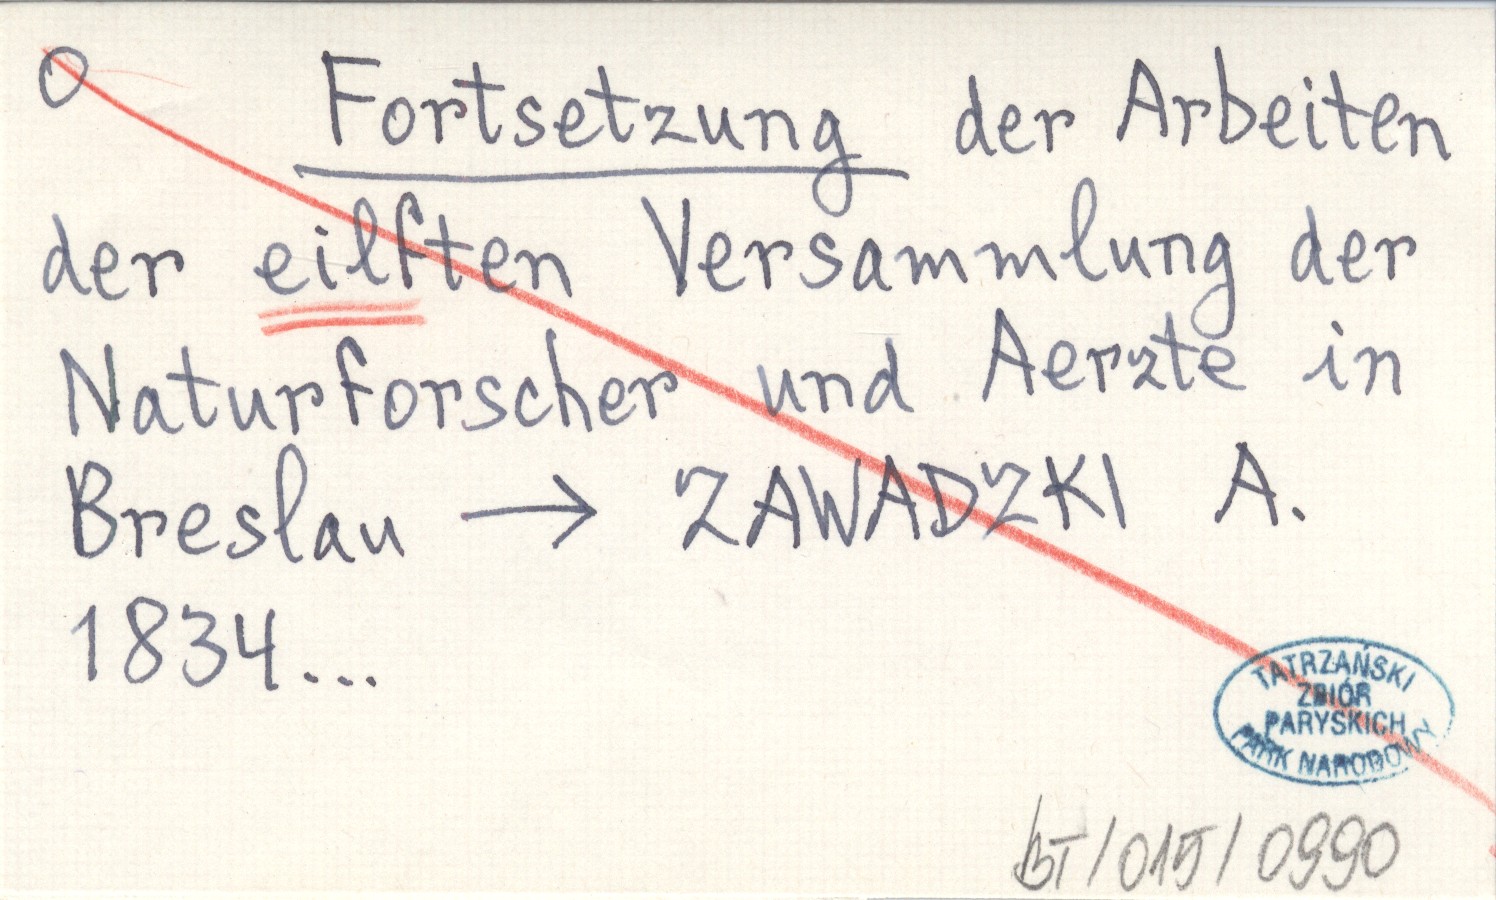 O Fortsetzung der Arbeiten
der eilften Versammlung der
Naturforscher und Aerzte in
Breslau → ZAWADZKI A.
1834...
TATRZAŃSKI
ZBIÓR
PARYSKICH
PARK NARODOWY
BT/015/0990